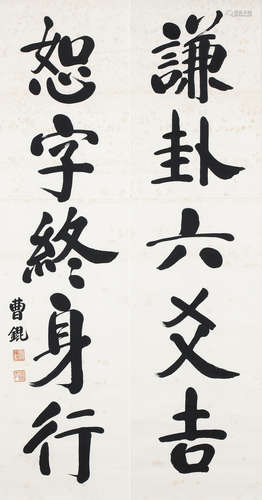 謙卦六爻吉
恕字終身行
曹錕